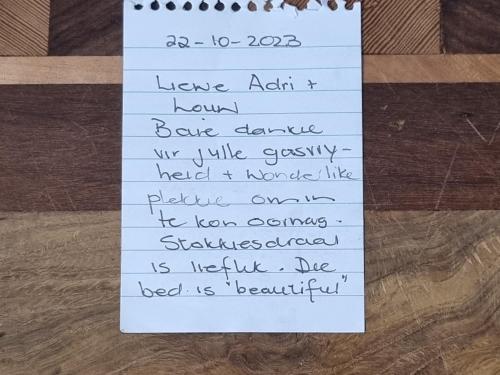 22-10-2023
Liewe Adri +
Louw
Baie dankie
vir julle gasvry-
heid + wonderlike
plekkie om in
te kon oornag.
Stokkiesdraai
is lieflik. Die
bed is "beautiful"